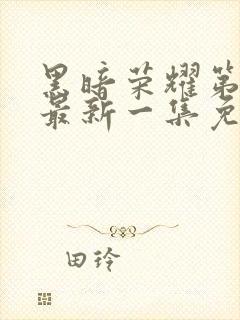 黑暗荣耀第
最新一集免
田玲